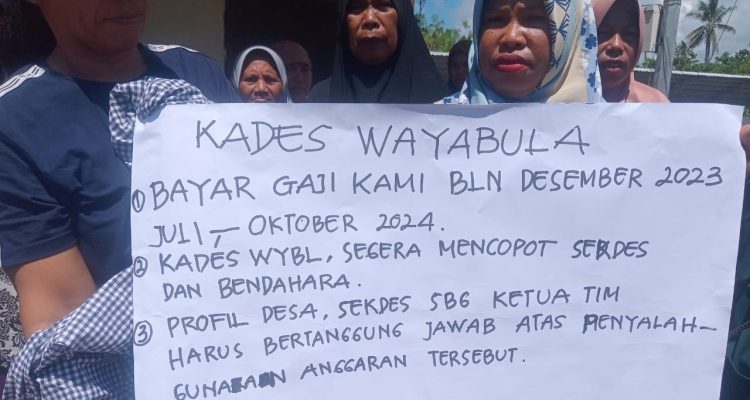 KADES WAYABULA
① BAYAR GAJI KAMI BLN DESEMBER 2023
JULI – OKTOBER 2024.
② KADES WYBL, SEGERA MENCOPOT SEKDES
DAN BENDAHARA.
③ PROFIL DESA, SEKDES SBG KETUA TIM
HARUS BERTANGGUNG JAWAB ATAS PENYALAH-
GUNAAN ANGGARAN TERSEBUT.